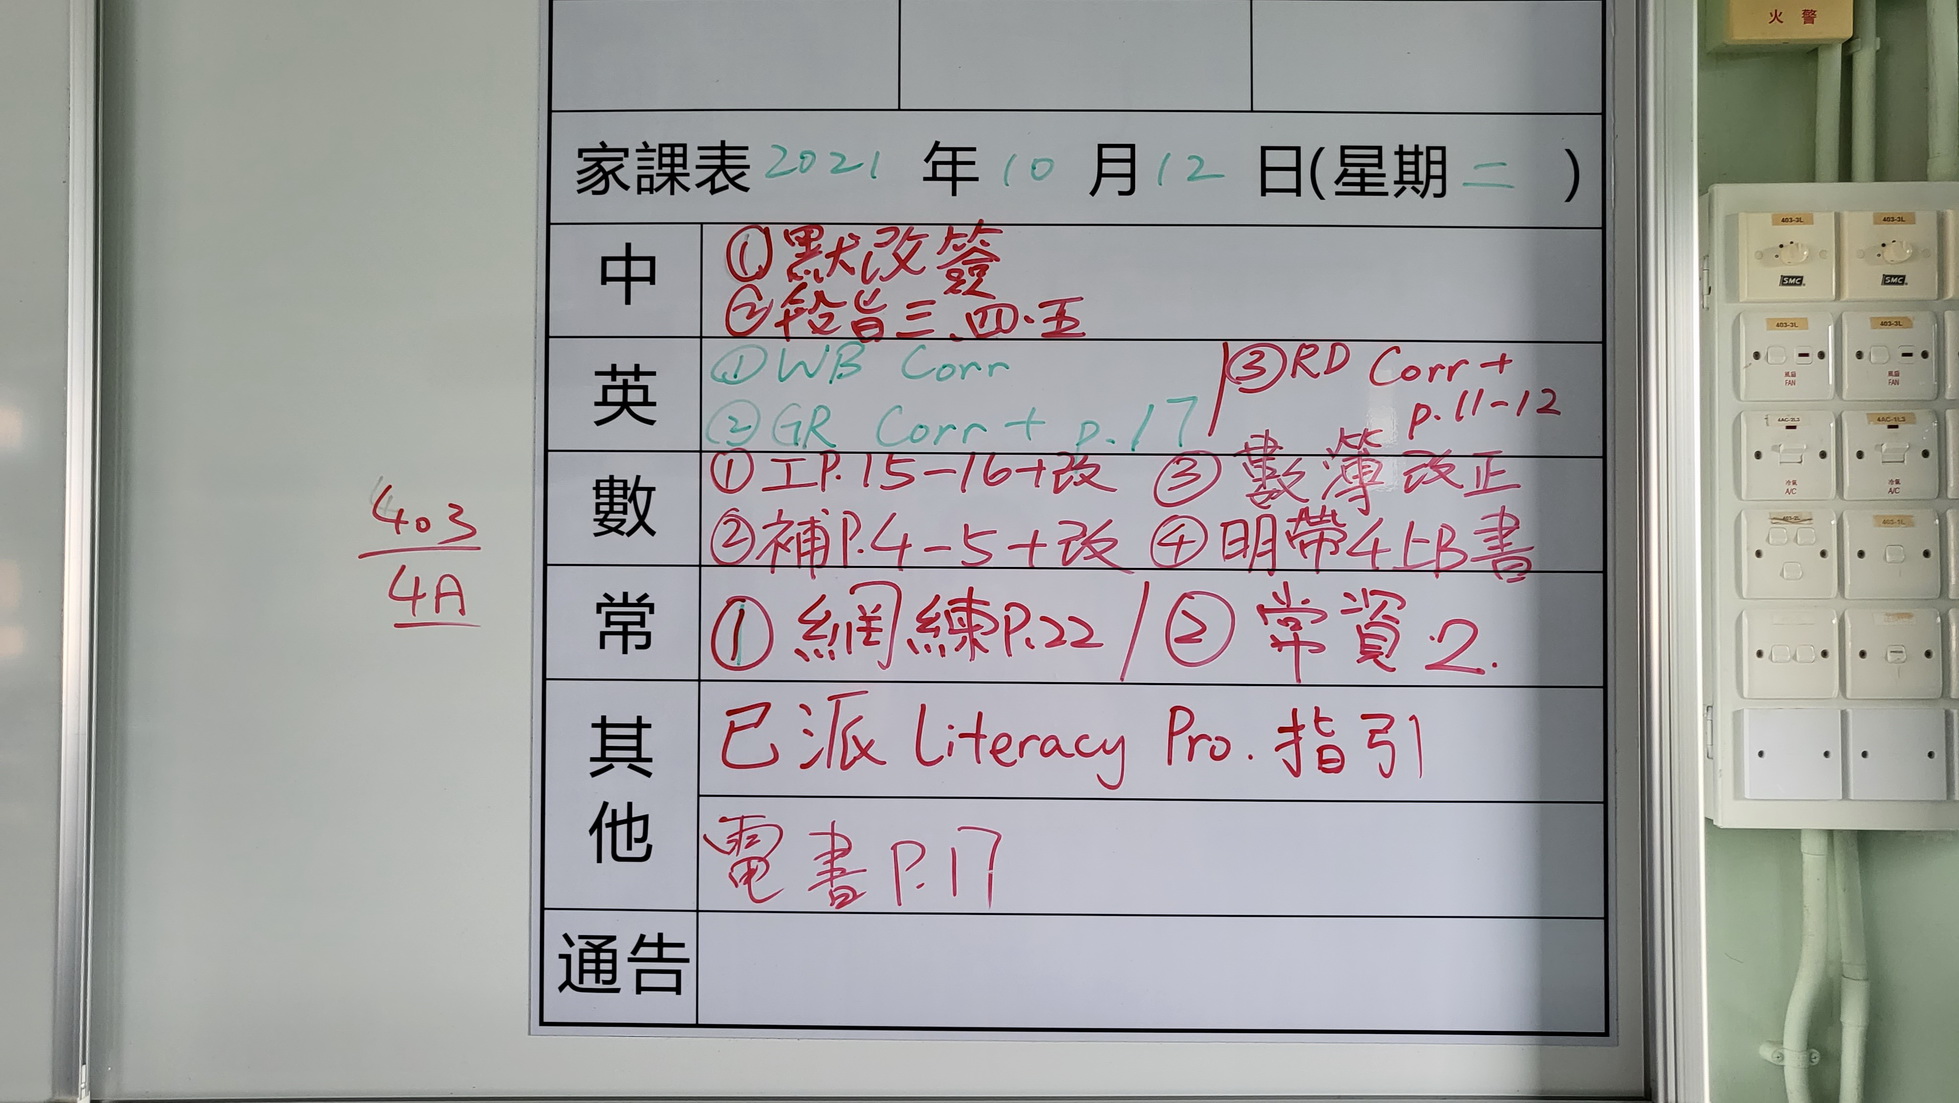 火 警
家課表 2021 年 10 月 12 日(星期 二 )
中
①默改簽
②段旨三、四、五
英
①WB Corr
②GR Corr + p.17
③RD Corr +
p.11-12
數
①工P.15-16+改 ③數簿改正
②補P.4-5+改 ④明帶4上B書
403
4A
常
①網練P.22 / ②常資2.
其他
已派 Literacy Pro. 指引
電書 P.17
通告
403-3L
403-3L
SMC
SMC
403-3L
403-3L
風扇
FAN
風扇
FAN
冷氣
A/C
冷氣
A/C